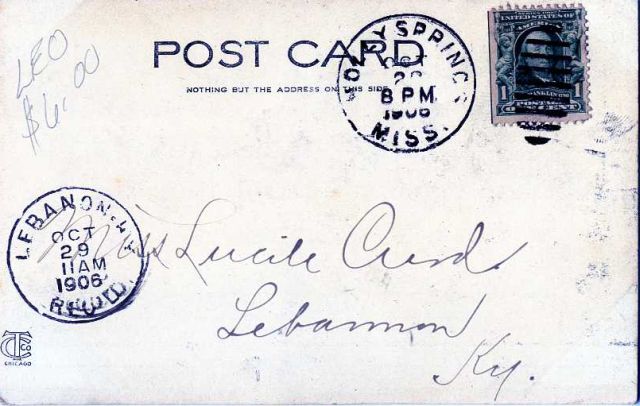 LEO
$6.00
POST CARD
NOTHING BUT THE ADDRESS ON THIS SIDE
HOLLY SPRINGS
OCT
8 PM
1906
MISS.
UNITED STATES OF AMERICA
FRANKLIN
1 POSTAGE 1
CENT
LEBANON, KY.
OCT
29
11 AM
1906
REC'D.
Miss Lucile Curd
Lebannon
Ky.
CT CO
CHICAGO